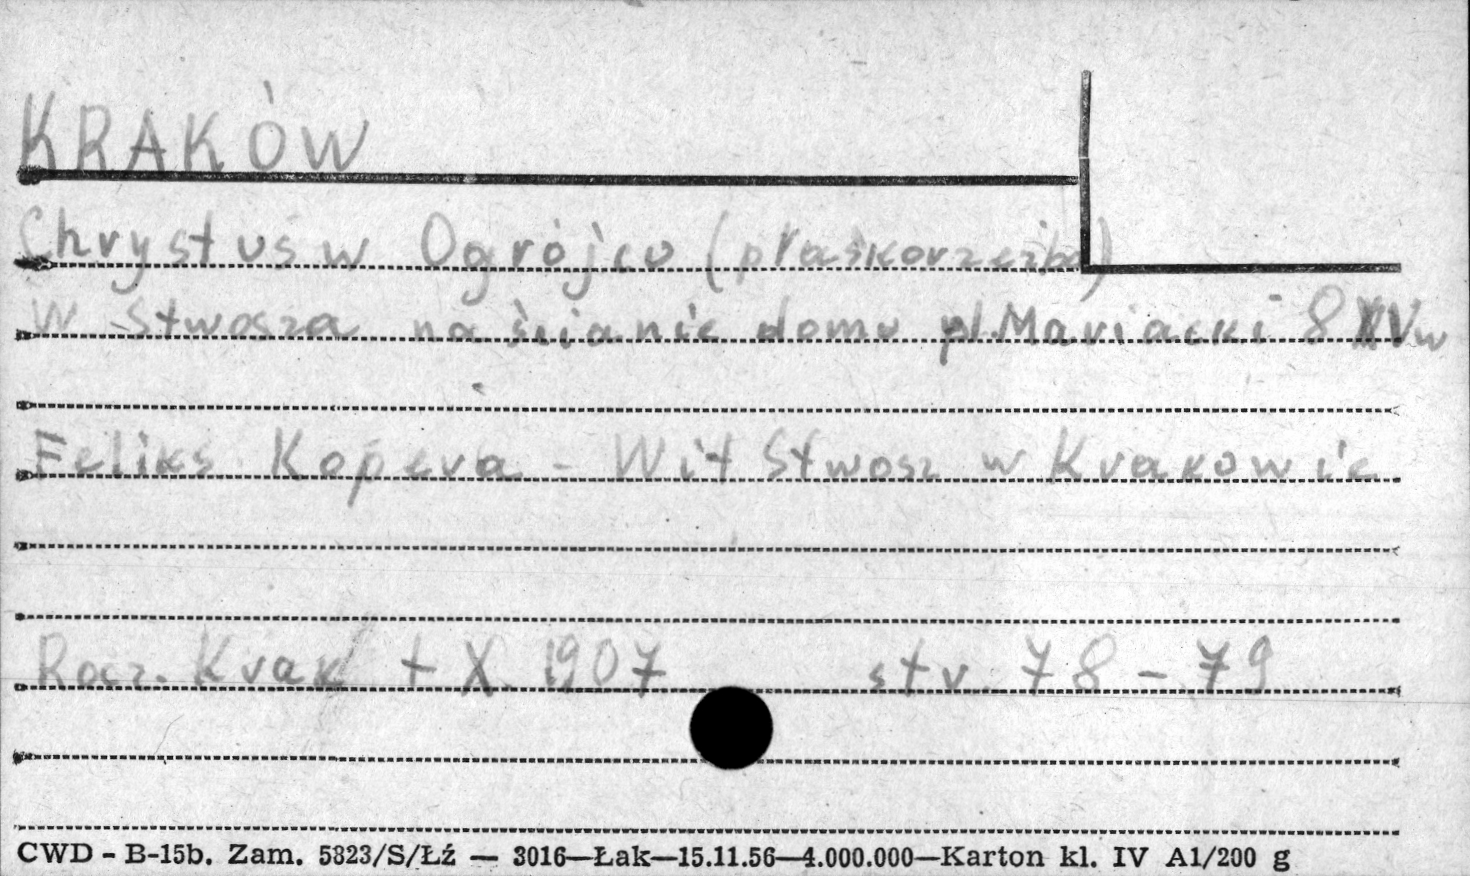 KRAKÓW
Chrystus w Ogrójcu (płaskorzeźba)
W Stwosza na ścianie domu pl. Mariacki 8 XV w
Feliks Kopera - Wit Stwosz w Krakowie
Rocz. Krak t X. 1907 str. 78-79
CWD - B-15b. Zam. 5823/S/Łź — 3016—Łak—15.11.56—4.000.000—Karton kl. IV A1/200 g